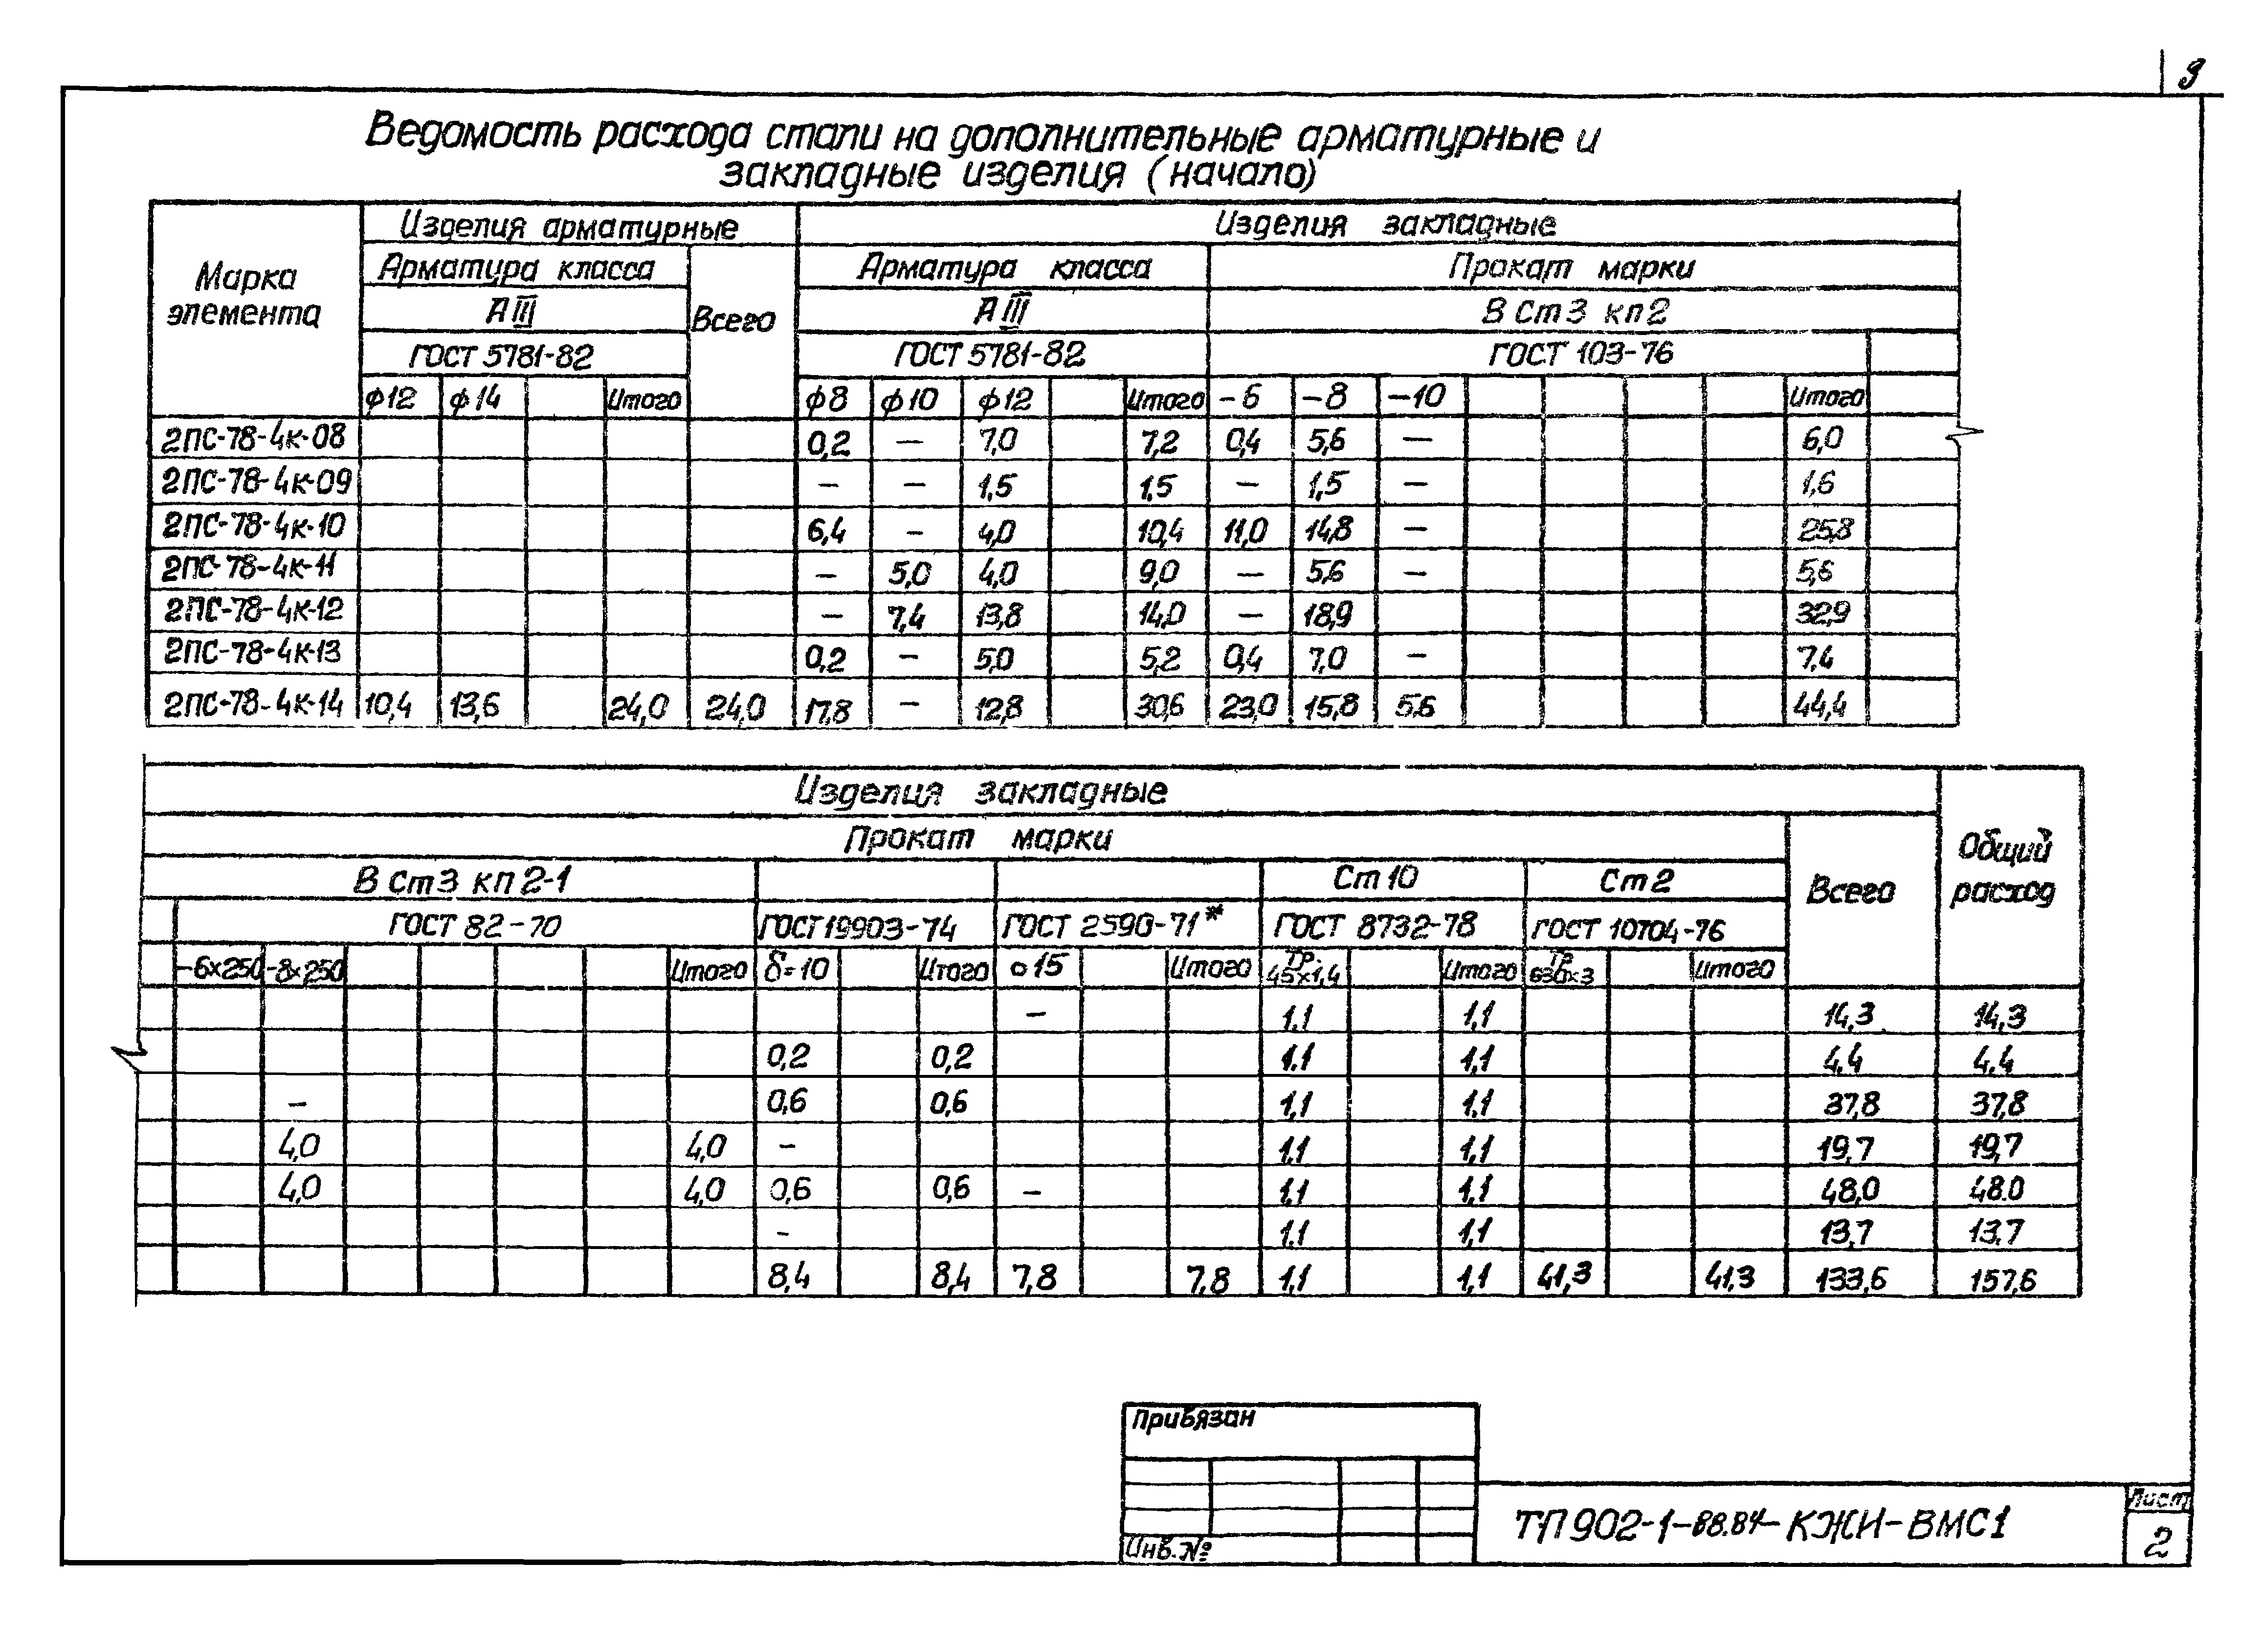 9
Ведомость расхода стали на дополнительные арматурные и
закладные изделия (начало)
Марка элемента | Изделия арматурные | Изделия закладные
Арматура класса | Всего | Арматура класса | Прокат марки
А III | А III | В Ст3 кп2
ГОСТ 5781-82 | ГОСТ 5781-82 | ГОСТ 103-76
ф12 | ф14 | Итого | ф8 | ф10 | ф12 | Итого | -6 | -8 | -10 | Итого
2ПС-78-4к-08 | 0,2 | — | 7,0 | 7,2 | 0,4 | 5,6 | — | 6,0
2ПС-78-4к-09 | — | — | 1,5 | 1,5 | — | 1,5 | — | 1,6
2ПС-78-4к-10 | 6,4 | — | 4,0 | 10,4 | 11,0 | 14,8 | — | 25,8
2ПС-78-4к-11 | — | 5,0 | 4,0 | 9,0 | — | 5,6 | — | 5,6
2ПС-78-4к-12 | — | 7,4 | 13,8 | 14,0 | — | 18,9 | 32,9
2ПС-78-4к-13 | 0,2 | — | 5,0 | 5,2 | 0,4 | 7,0 | — | 7,4
2ПС-78-4к-14 | 10,4 | 13,6 | 24,0 | 24,0 | 17,8 | — | 12,8 | 30,6 | 23,0 | 15,8 | 5,6 | 44,4
Изделия закладные | Общий расход
Прокат марки | Всего
В Ст3 кп2-1 | Ст10 | Ст2
ГОСТ 82-70 | ГОСТ19903-74 | ГОСТ 2590-71* | ГОСТ 8732-78 | ГОСТ 10704-76
-6х250 | -8х250 | Итого | δ=10 | Итого | о15 | Итого | Тр. 45х1,4 | Итого | Тр 630х3 | Итого
— | 1.1 | 1,1 | 14,3 | 14,3
0,2 | 0,2 | 1.1 | 1,1 | 4,4 | 4,4
— | 0,6 | 0,6 | 1,1 | 1,1 | 37,8 | 37,8
4,0 | 4,0 | — | 1.1 | 1,1 | 19,7 | 19,7
4,0 | 4,0 | 0,6 | 0,6 | — | 1.1 | 1,1 | 48,0 | 48.0
— | 1.1 | 1,1 | 13,7 | 13,7
8,4 | 8,4 | 7,8 | 7,8 | 1,1 | 1,1 | 41,3 | 41,3 | 133,6 | 157,6
Привязан
Инв.№
ТП902-1-88.84-КЖИ-ВМС1
Лист
2